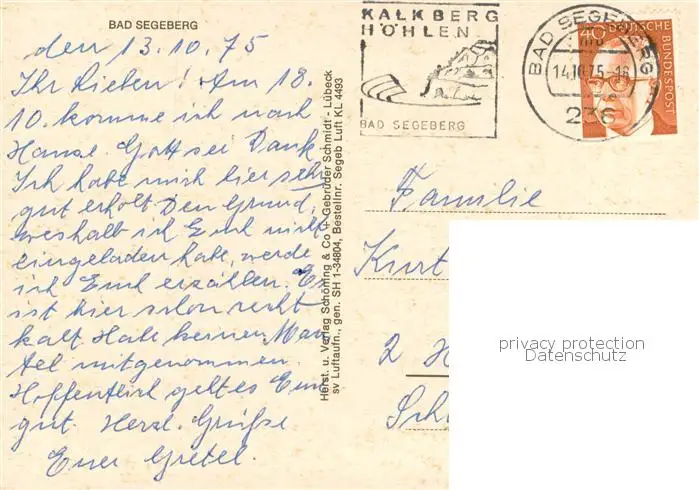 BAD SEGEBERG
den 13.10.75
Ihr Lieben! Am 18.
10. komme ich nach
Hause Gott sei Dank.
Ich habe mich hier sehr
gut erholt Den Grund,
weshalb ich Euch nicht
eingeladen habe, werde
ich Euch erzählen. Es
ist hier schon recht
kalt Habe keinen Man
tel mitgenommen.
Hoffentlich geht es Euch
gut. Herzl. Grüße
Euer Gretel.
Herst. u. Verlag Schöning & Co + Gebrüder Schmidt - Lübeck
sv Luftaufn., gen. SH 1-34804, Bestellnr. Segeb Luft KL 4493
KALKBERG
HÖHLEN
BAD SEGEBERG
BAD SEGEBERG
14.10.75-16
236
40
DEUTSCHE BUNDESPOST
Familie
Kurt
2 H
Sch
privacy protection
Datenschutz